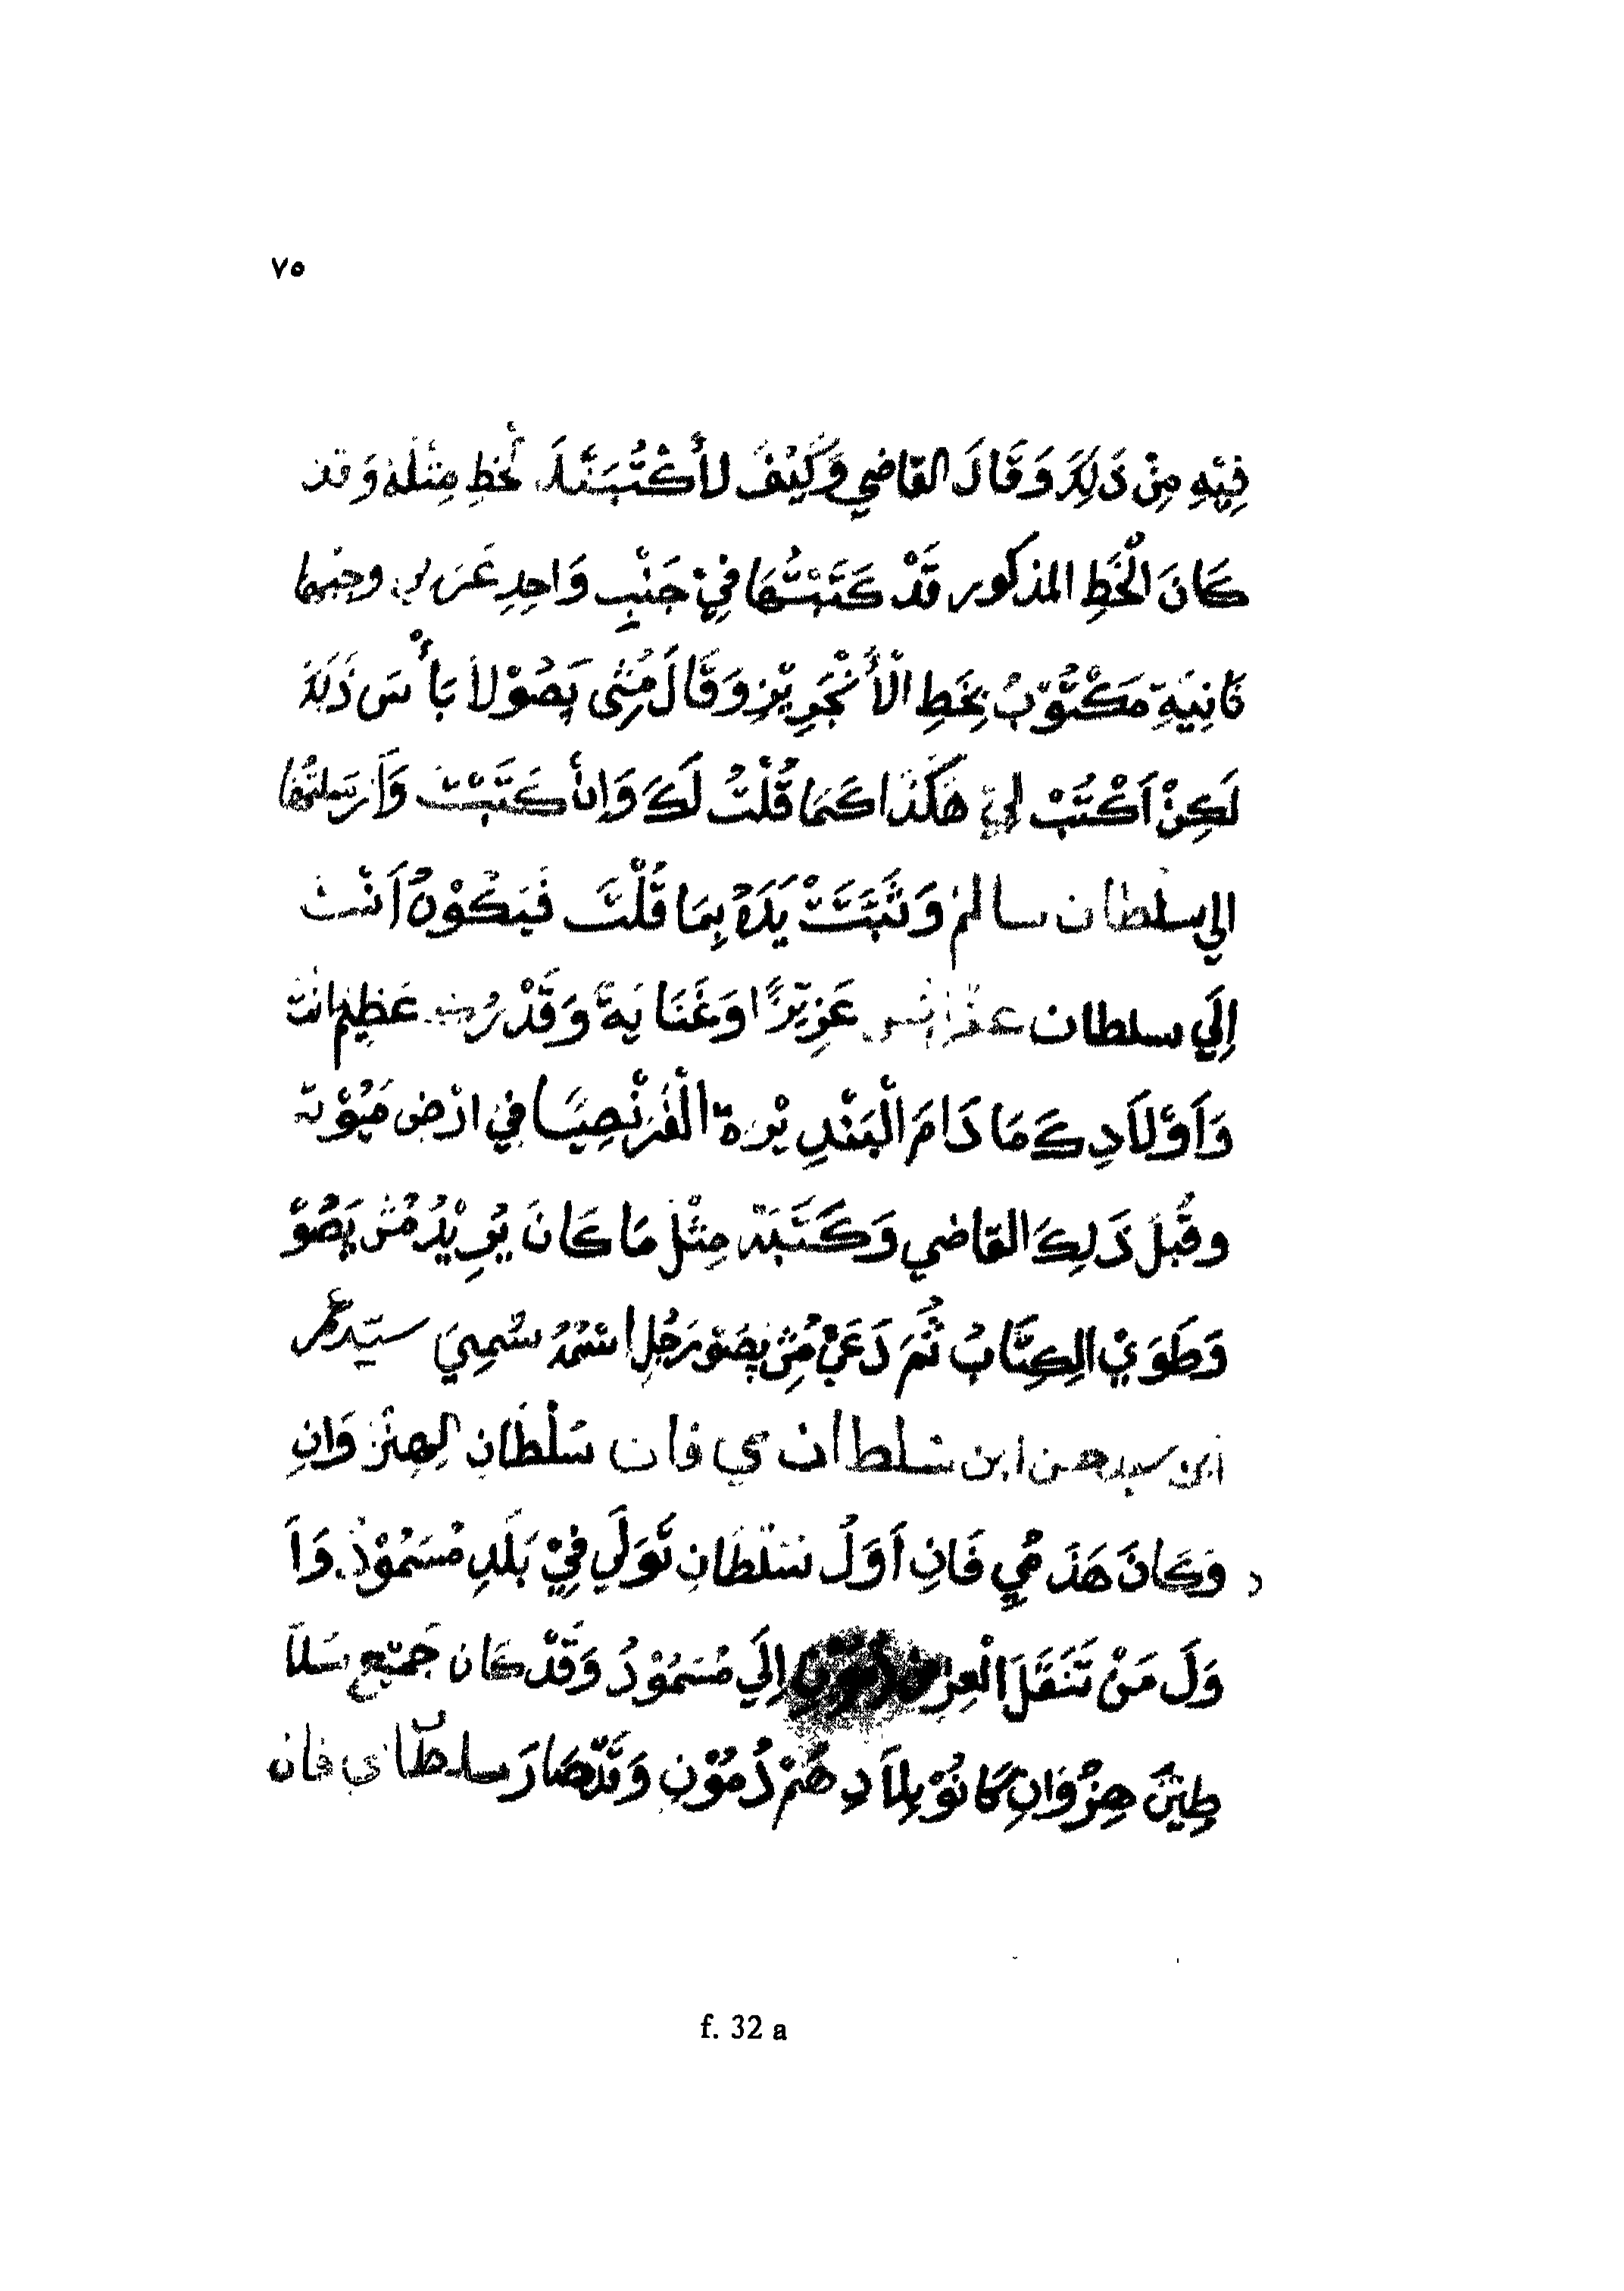 ٧٥
فِيْهِ مِنْ ذَلِكَ وَقَالَ القاضي وَكَيْفَ لأَكْتُبَنَّكَ لخَطِ مِثْلَهُ وَقد
كَانَ الْخَطِ المذكور قَدْ كَتَبْتُهَا فِيْ جَنْبِ وَاحِدِ عَرَبي وجنبها
ثَانِيَةِ مَكْتُوْبُ بِخَطِ الْأَنْجَرِيْزِ وَقَالَ مُشِى پَصُوْ لاَ بَأْسَ ذَلِكَ
لَكِنْ اَكْتُبْ لِيْ هَكَذَا كَمَا قُلْتُ لَكَ وَاِنْ كَتَبْتَ وَأَرْسَلتُهَا
الي سلطان سالم وَثَبَتَتْ يَدَهُ بِمَا قُلْتَ فَيَكُوْنُ اَنْتَ
اِلَي سلطان عَزِيْزًا وَغَنَايَةً وَقَدْرُتَ عَظِيْم انت
وَاَوْلاَدِكَ مَا دَامَ الْبَنْدِيْرَة الْفُرَنْصِيَا فِي ارْضِ مَيُوْتَة
وقَبْلَ ذَلِكَ القاضي وَكَتَبَة مِثْلَ مَا كَانَ يُرِيْدُ مُشْ پَصُوْ
وَطَوَيْ الكِتَابُ ثُمَّ دَعَيْ مُشِ پَصَوْ رَجُلِ اسْمُهُ سُمِيَ سيّد عمر
ابن سيد حسن ابن سلطاان مي فان سَلْطَانِ لهِنْزوَانِ
وَكَانَ هَذَ مُي فَانِ اَوَلُ سَلْطَانِ تَوَلَي فِيْ بَلَدِ مُسَمُوْدُ وَاَ
وَلَ مَنْ تَنَقَلَ الْعِزْ اِلَي مُسَمُوْدُ وَقَدْ كَان جَمِيْعِ سَلَا
طِيْنَ هِنْزُوَانِ كَانُوْ بِلاَدِ هُمْ دُمُوْنِ وَقَدْ صَارَ سلطاي فان
f. 32 a